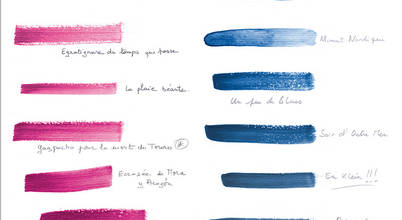 Egratignure du temps qui passe
La plaie béante
gazpacho pour la mort du Touro
Ecrasée de Mora
y Aragón
Minuit Nordique
Un peu de blues
Soir d'Outre Mer
En Klein !!!